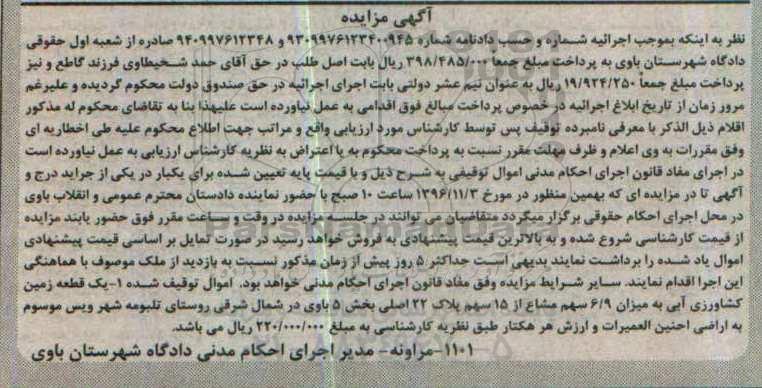 آگهی مزایده
نظر به اینکه بموجب اجرائیه شماره و حسب دادنامه شماره ۹۳۰۹۹۷۶۱۲۳۴۰۰۹۴۵ و ۹۴۰۹۹۷۶۱۲۳۴۸ صادره از شعبه اول حقوقی
دادگاه شهرستان باوی به پرداخت مبلغ جمعاً ۳۹۸/۴۸۵/۰۰۰ ریال بابت اصل طلب در حق آقای حمد شحیطاوی فرزند گاطع و نیز
پرداخت مبلغ جمعاً ۱۹/۹۲۴/۲۵۰ ریال به عنوان نیم عشر دولتی بابت اجرای اجرائیه در حق صندوق دولت محکوم گردیده و علیرغم
مرور زمان از تاریخ ابلاغ اجرائیه در خصوص پرداخت مبالغ فوق اقدامی به عمل نیاورده است علیهذا بنا به تقاضای محکوم له مذکور
اقلام ذیل الذکر با معرفی نامبرده توقیف پس توسط کارشناس مورد ارزیابی واقع و مراتب جهت اطلاع محکوم علیه طی اخطاریه ای
وفق مقررات به وی اعلام و ظرف مهلت مقرر نسبت به پرداخت محکوم به یا اعتراض به نظریه کارشناس ارزیابی به عمل نیاورده است
در اجرای مفاد قانون اجرای احکام مدنی اموال توقیفی به شرح ذیل و با قیمت پایه تعیین شده برای یکبار در یکی از جراید درج و
آگهی تا در مزایده ای که بهمین منظور در مورخ ۱۳۹۶/۱۱/۳ ساعت ۱۰ صبح با حضور نماینده دادستان محترم عمومی و انقلاب باوی
در محل اجرای احکام حقوقی برگزار میگردد متقاضیان می توانند در جلسه مزایده در وقت و ساعت مقرر فوق حضور یابند مزایده
از قیمت کارشناسی شروع شده و به بالاترین قیمت پیشنهادی به فروش خواهد رسید در صورت تمایل بر اساسی قیمت پیشنهادی
اموال یاد شده را برداشت نمایند بدیهی است حداکثر ۵ روز پیش از زمان مذکور نسبت به بازدید از ملک موصوف با هماهنگی
این اجرا اقدام نمایند. سایر شرایط مزایده وفق مفاد قانون اجرای احکام مدنی خواهد بود. اموال توقیف شده ۱-یک قطعه زمین
کشاورزی آبی به میزان ۶/۹ سهم مشاع از ۱۵ سهم پلاک ۲۲ اصلی بخش ۵ باوی در شمال شرقی روستای تلبومه شهر ویس موسوم
به اراضی احنین العمیرات و ارزش هر هکتار طبق نظریه کارشناسی به مبلغ ۲۲۰/۰۰۰/۰۰۰ ریال می باشد.
۱۱۰۱-مراونه- مدیر اجرای احکام مدنی دادگاه شهرستان باوی